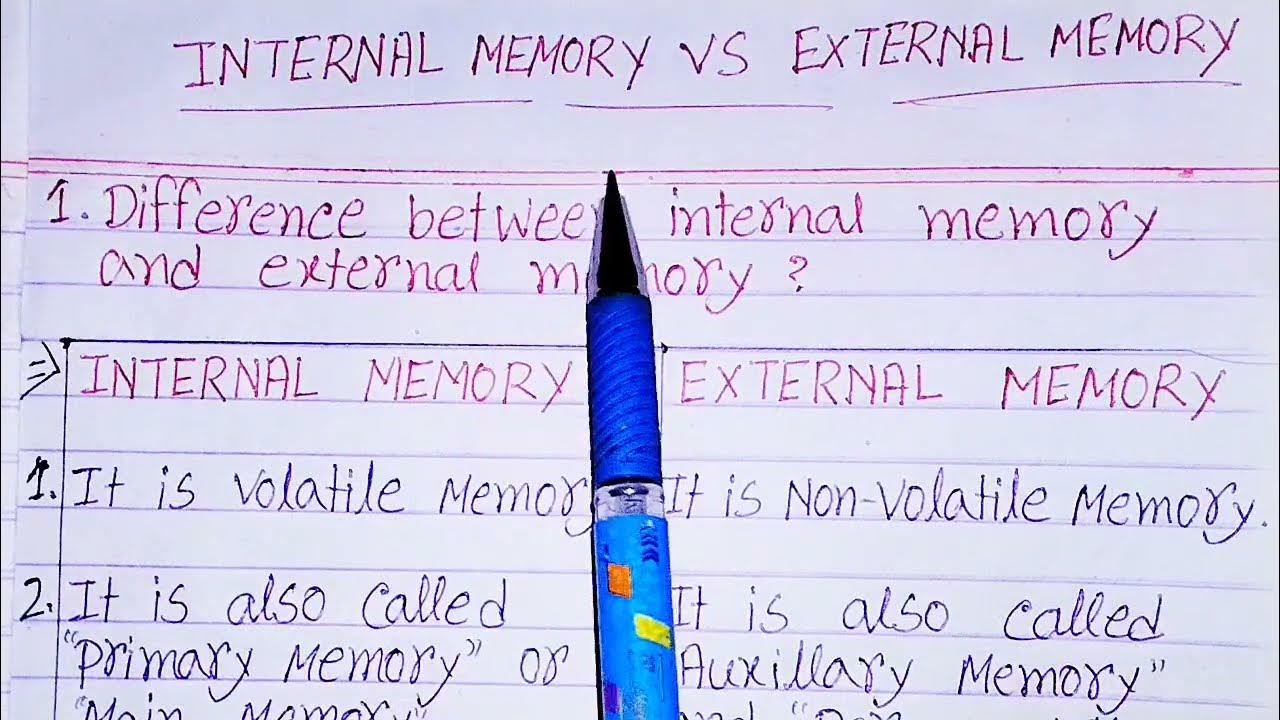 INTERNAL MEMORY VS EXTERNAL MEMORY
1. Difference between internal memory
and external memory ?
⇒ INTERNAL MEMORY EXTERNAL MEMORY
1. It is Volatile Memory It is Non-Volatile Memory.
2. It is also called It is also called
"Primary Memory" or Auxillary Memory"
"Main Memory" and